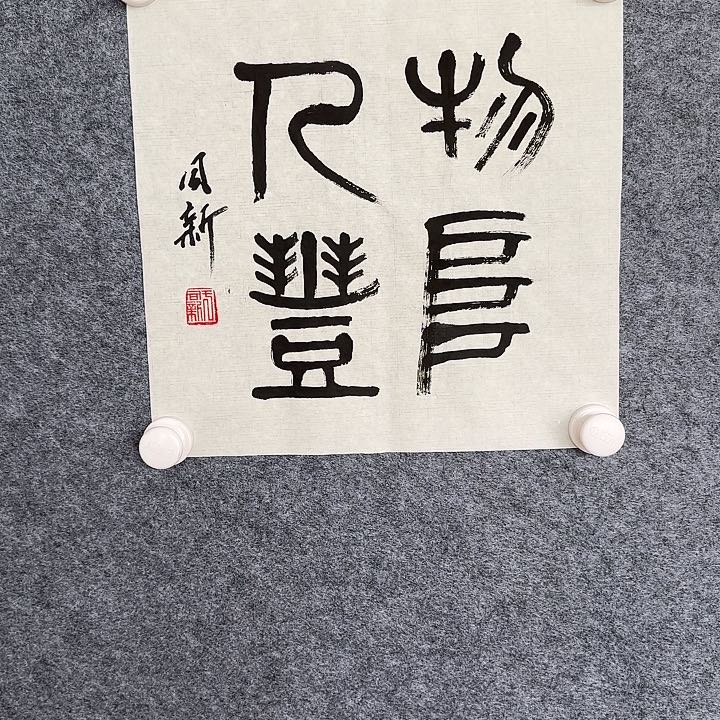 物阜
民豐
同新